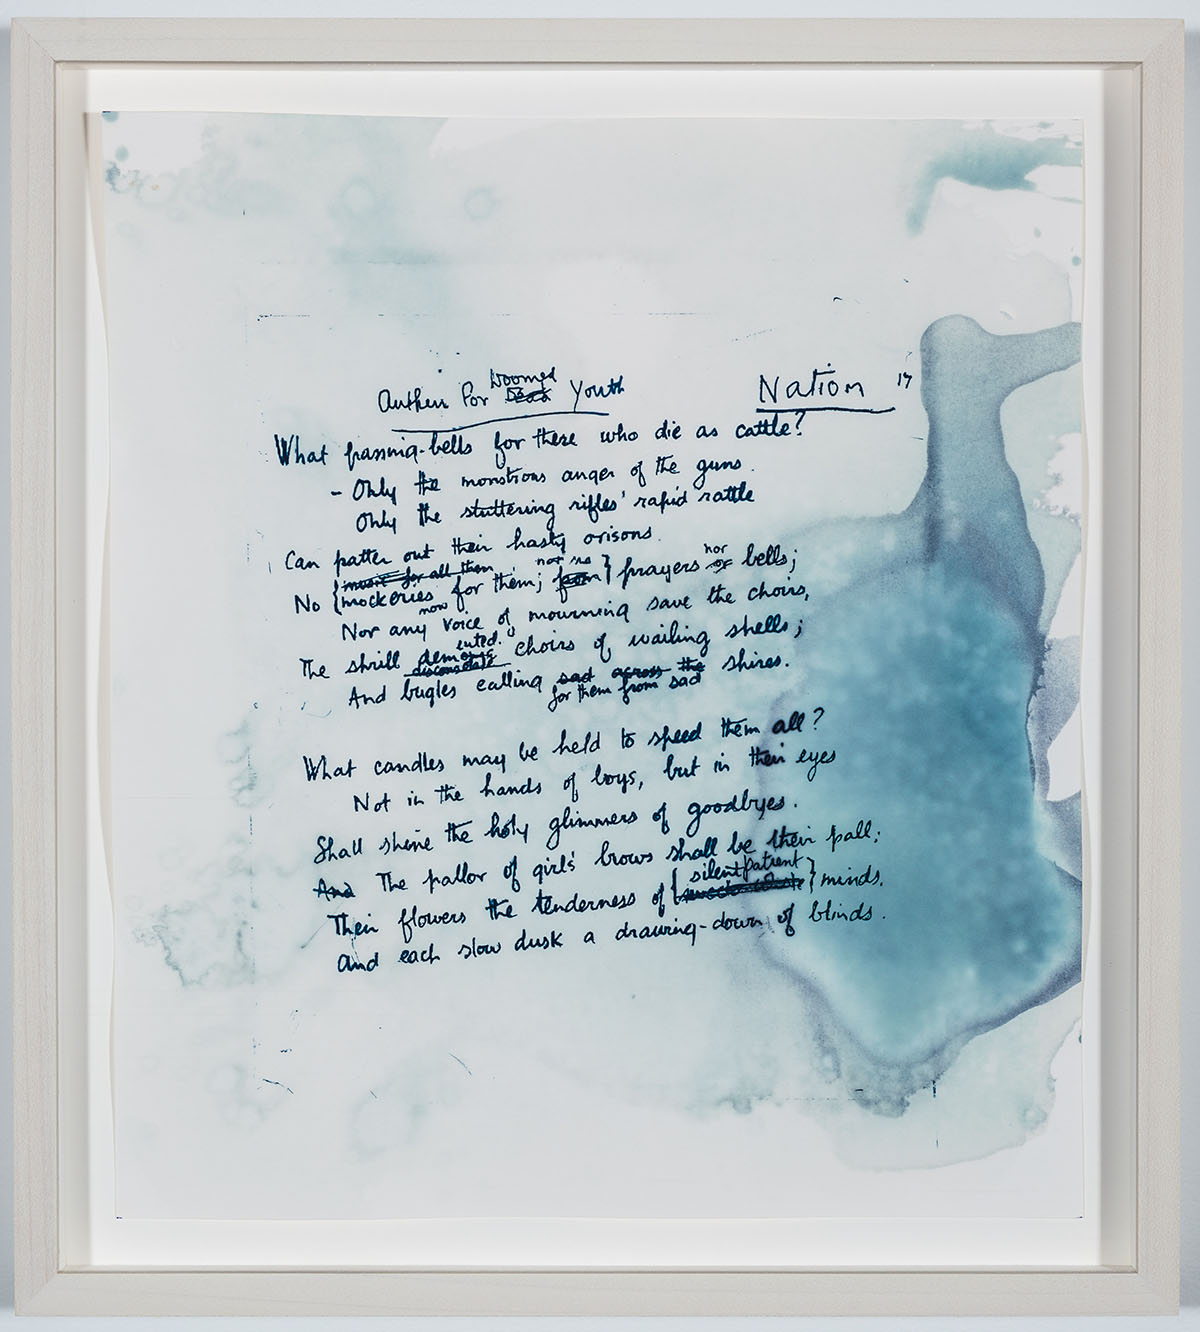 Anthem for Doomed Dead Youth
Nation 17
What passing-bells for these who die as cattle?
- Only the monstrous anger of the guns.
Only the stuttering rifles' rapid rattle
Can patter out their hasty orisons.
music for all them not no nor
No mockeries for them; from prayers or bells;
now
Nor any voice of mourning save the choirs,
ented.
The shrill demented choirs of wailing shells;
disconsolate
And bugles calling sad across the shires.
for them from sad
What candles may be held to speed them all?
Not in the hands of boys, but in their eyes
Shall shine the holy glimmers of goodbyes.
And The pallor of girls' brows shall be their pall;
silent patient
Their flowers the tenderness of minds,
And each slow dusk a drawing-down of blinds.